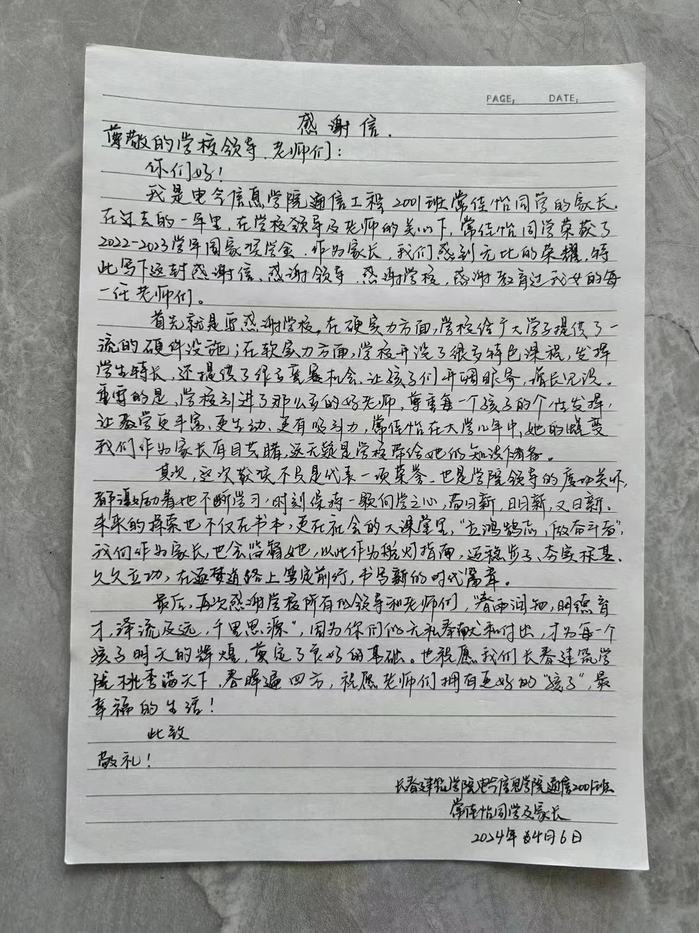 PAGE: DATE:
感谢信.
尊敬的学校领导、老师们：
你们好！
我是电气信息学院通信工程2001班常佳怡同学的家长.
在过去的一年里，在学校领导及老师的关心下，常佳怡同学荣获了
2022-2023学年国家奖学金.作为家长，我们感到无比的荣耀，特
此写下这封感谢信、感谢领导、感谢学校，感谢教育过我女的每
一任老师们。
首先就是要感谢学校。在硬实力方面，学校给广大学子提供了一
流的硬件设施；在软实力方面，学校开设了很多特色课程，发挥
学生特长，还提供了很多发展机会，让孩子们开阔眼界，增长见识。
重要的是，学校引进了那么多的好老师，尊重每一个孩子的个性发挥，
让教学更丰富、更生动、更有吸引力，常佳怡在大学几年中，她的蜕变
我们作为家长有目共睹，这无疑是学校带给她们的知识储备。
其次，这次教项不只是代表一项荣誉，也是学院领导的关怀，
都激励着她不断学习，时刻保持一颗向学之心，苟日新，日日新，又日新。
未来的探索也不仅在书本，更在社会的大课堂里，“立鸿鹄志，做奋斗者”，
我们作为家长，也会监督她，以此作为航灯指南，迈稳步子、夯实根基、
久久立功，在逐梦道路上笃定前行，书写新的时代篇章。
最后，再次感谢学校所有的领导和老师们，“春雨润物，明德育
才，泽流及远，千里思源”，因为你们的无私奉献和付出，才为每一个
孩子明天的辉煌，奠定了良好的基础。也祝愿我们长春建筑学
院桃李满天下，春晖遍四方，祝愿老师们拥有更好的“孩子”，最
幸福的生活！
此致
敬礼！
长春建筑学院电气信息学院通信2001班
常佳怡同学及家长
2024年4月6日